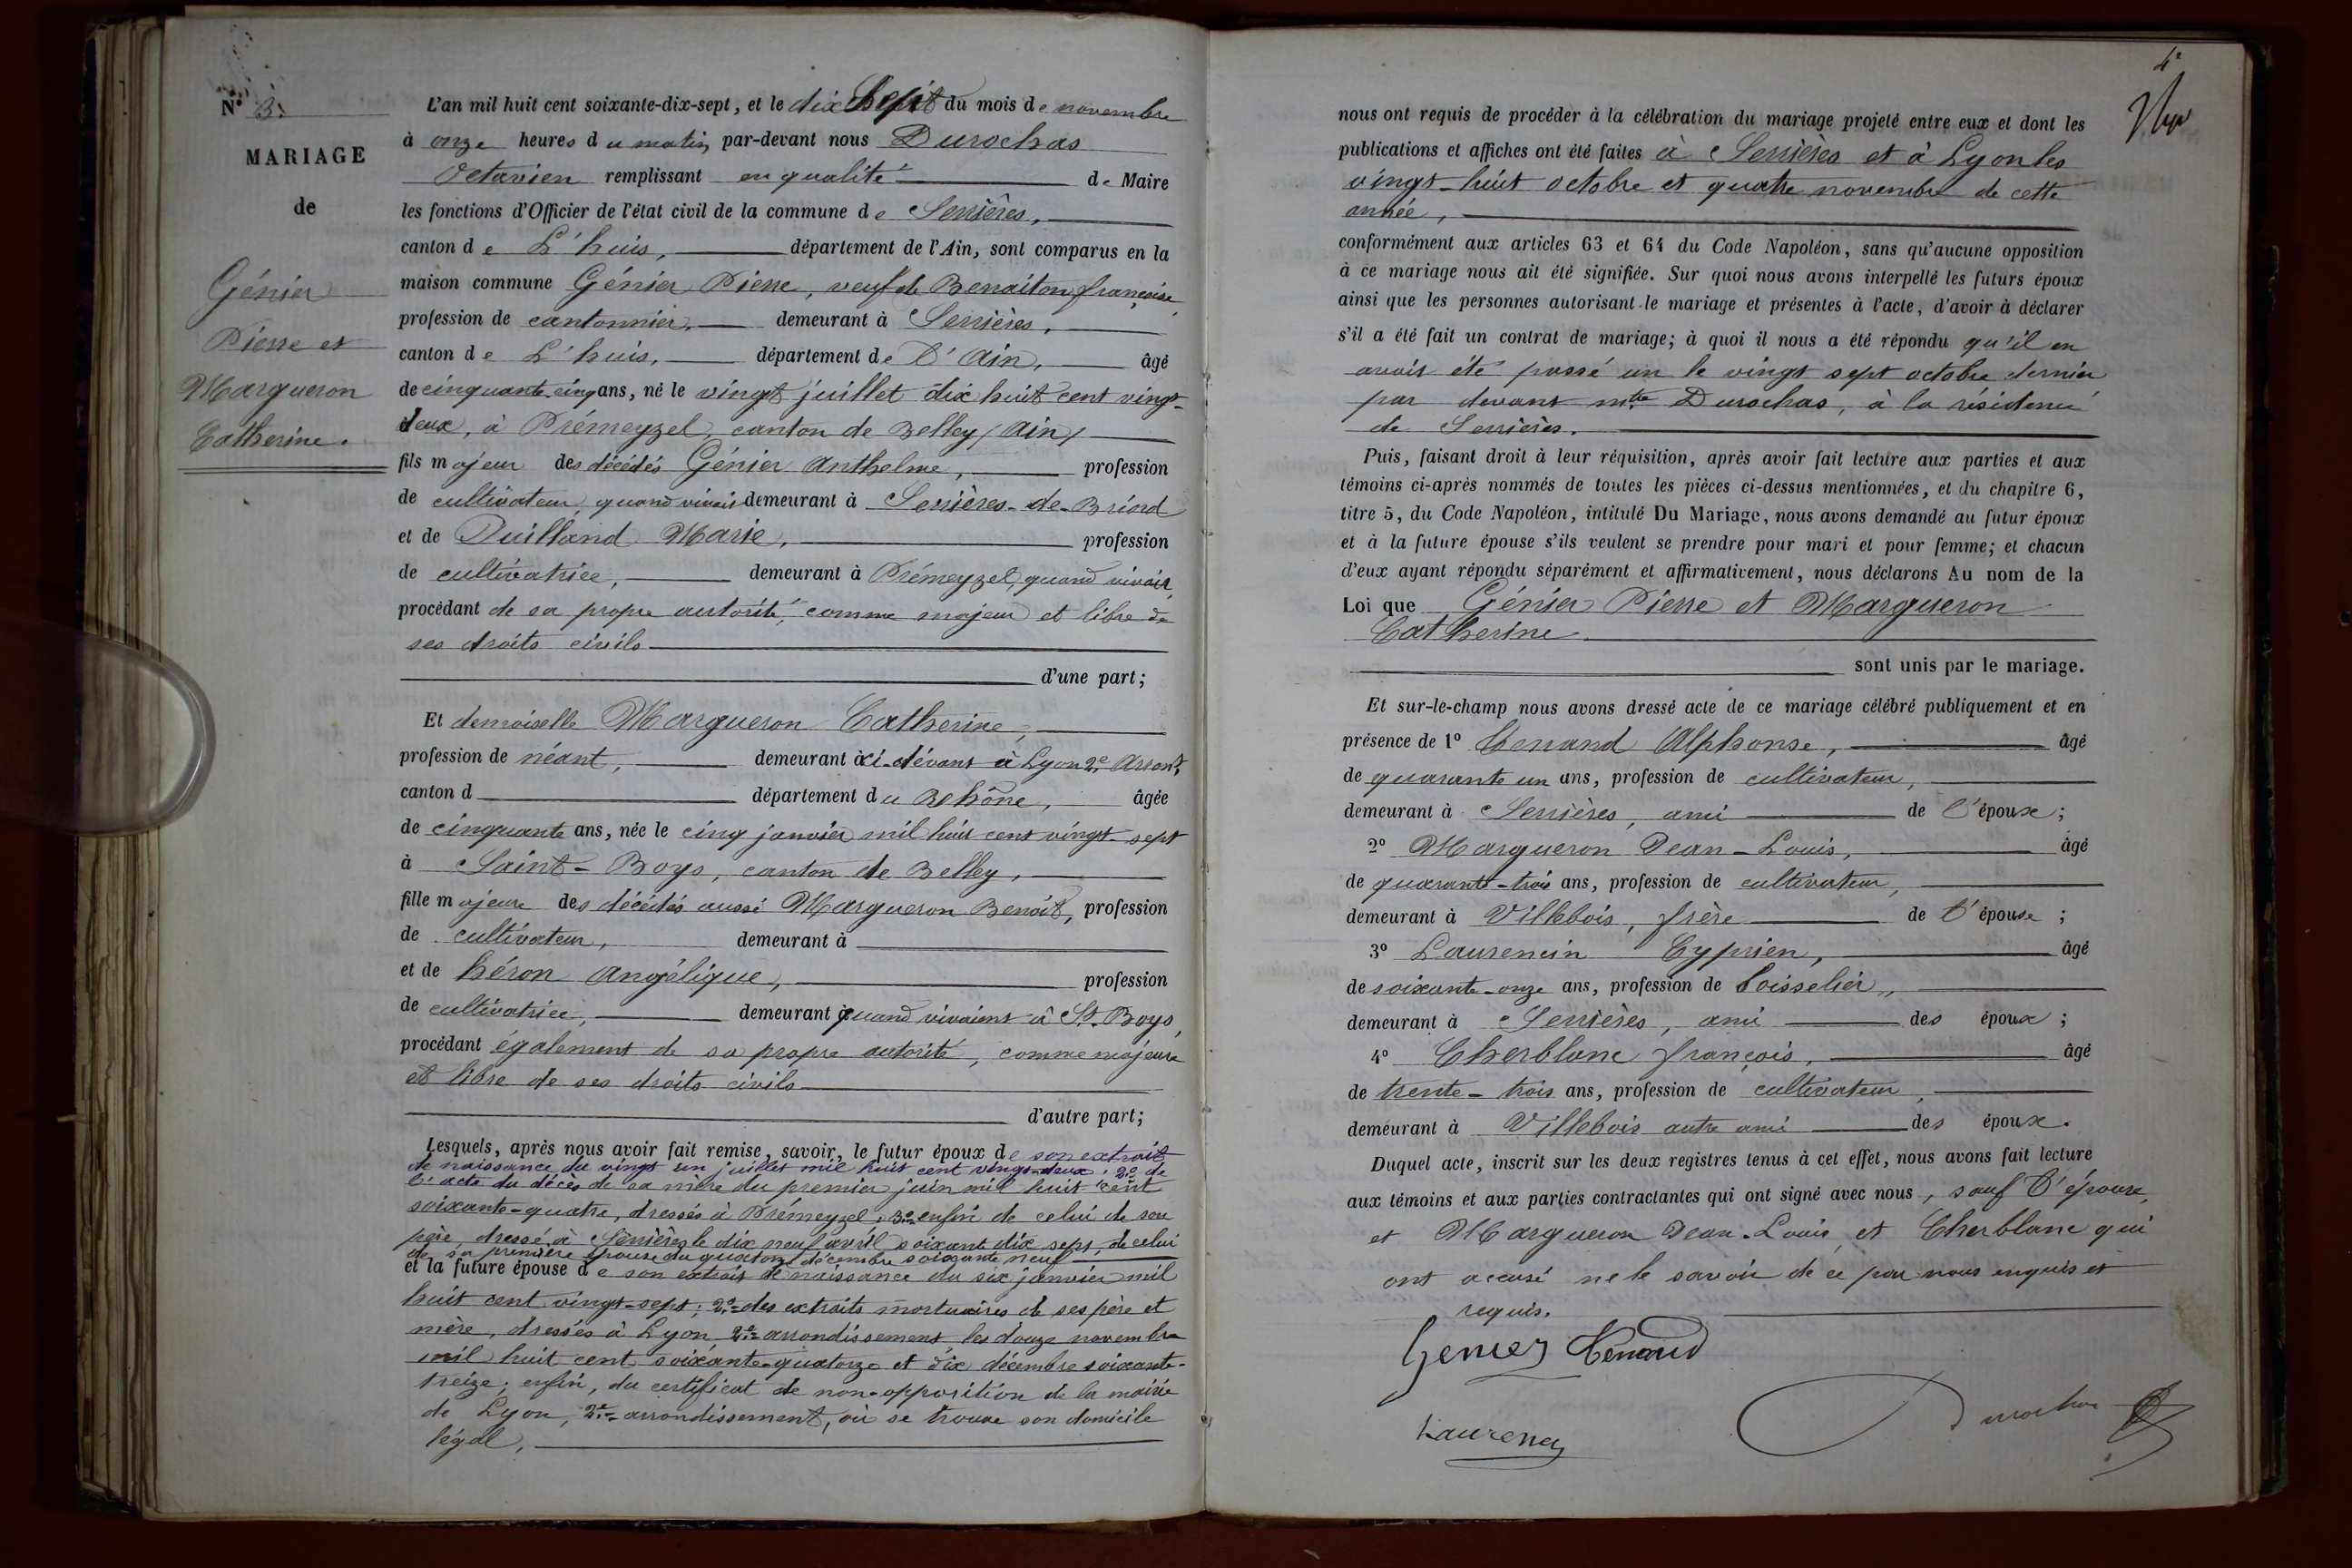 N° 3.
MARIAGE
de
Génier
Pierre et
Margueron
Catherine.
L'an mil huit cent soixante-dix-sept, et le dix Sept du mois de novembre
à onze heures du matin, par-devant nous Durochas
Octavien remplissant en qualité de Maire
les fonctions d'Officier de l'état civil de la commune de Serrières,
canton de L'huis, département de l'Ain, sont comparus en la
maison commune Génier Pierre, veuf de Benoiton françoise,
profession de cantonnier, demeurant à Serrières,
canton de L'huis, département de l'Ain, âgé
de cinquante-cinq ans, né le vingt juillet dix huit cent vingt-
deux, à Prémeyzel, canton de Belley (Ain)
fils majeur des décédés Génier Anthelme, profession
de cultivateur, quand vivait demeurant à Serrières-de-Briord
et de Puilland Marie, profession
de cultivatrice, demeurant à Prémeyzel, quand vivait,
procédant de sa propre autorité, comme majeur et libre de
ses droits civils
d'une part;
Et demoiselle Margueron Catherine,
profession de néant, demeurant ci-devant à Lyon 2e Arront,
canton d département du Rhône, âgée
de cinquante ans, née le cinq janvier mil huit cent vingt-sept
à Saint-Boys, canton de Belley,
fille majeure des décédés aussi Margueron Benoît, profession
de cultivateur, demeurant à
et de héron Angélique, profession
de cultivatrice, demeurant quand vivaient à St. Boys,
procédant également de sa propre autorité, comme majeure
et libre de ses droits civils
d'autre part;
Lesquels, après nous avoir fait remise, savoir, le futur époux de son extrait
de naissance du vingt un juillet mil huit cent vingt-deux; 2° de
l'acte du décès de sa mère du premier juin mil huit cent
soixante-quatre, dressés à Prémeyzel; 3° enfin de celui de son
père, dressé à Serrières le dix neuf avril soixante dix sept, de celui
de sa première épouse du quatorze décembre soixante neuf
et la future épouse de son extrait de naissance du six janvier mil
huit cent vingt-sept; 2° des extraits mortuaires de ses père et
mère, dressés à Lyon 2e arrondissement les douze novembre
mil huit cent soixante-quatorze et dix décembre soixante-
treize; enfin, du certificat de non-opposition de la mairie
de Lyon, 2e arrondissement, où se trouve son domicile
légal,
4e
nous ont requis de procéder à la célébration du mariage projeté entre eux et dont les
publications et affiches ont été faites à Serrières et à Lyon les
vingt-huit octobre et quatre novembre de cette
année,
conformément aux articles 63 et 64 du Code Napoléon, sans qu'aucune opposition
à ce mariage nous ait été signifiée. Sur quoi nous avons interpellé les futurs époux
ainsi que les personnes autorisant le mariage et présentes à l'acte, d'avoir à déclarer
s'il a été fait un contrat de mariage; à quoi il nous a été répondu qu'il en
avait été passé un le vingt sept octobre dernier
par devant mtre Durochas, à la résidence
de Serrières.
Puis, faisant droit à leur réquisition, après avoir fait lecture aux parties et aux
témoins ci-après nommés de toutes les pièces ci-dessus mentionnées, et du chapitre 6,
titre 5, du Code Napoléon, intitulé Du Mariage, nous avons demandé au futur époux
et à la future épouse s'ils veulent se prendre pour mari et pour femme; et chacun
d'eux ayant répondu séparément et affirmativement, nous déclarons Au nom de la
Loi que Génier Pierre et Margueron
Catherine
sont unis par le mariage.
Et sur-le-champ nous avons dressé acte de ce mariage célébré publiquement et en
présence de 1° Cenand Alphonse, âgé
de quarante un ans, profession de cultivateur,
demeurant à Serrières, ami de l'époux;
2° Margueron Jean-Louis, âgé
de quarante-trois ans, profession de cultivateur,
demeurant à Villebois, frère de l'épouse;
3° Laurencin Cyprien, âgé
de soixante-onze ans, profession de boisselier,
demeurant à Serrières, ami des époux;
4° Cherblanc françois, âgé
de trente-trois ans, profession de cultivateur,
demeurant à Villebois autre ami des époux.
Duquel acte, inscrit sur les deux registres tenus à cet effet, nous avons fait lecture
aux témoins et aux parties contractantes qui ont signé avec nous, sauf l'épouse,
et Margueron Jean-Louis et Cherblanc qui
ont accusé ne le savoir de ce par nous enquis et
requis.
Genier Cenand
Laurencin
Durochas